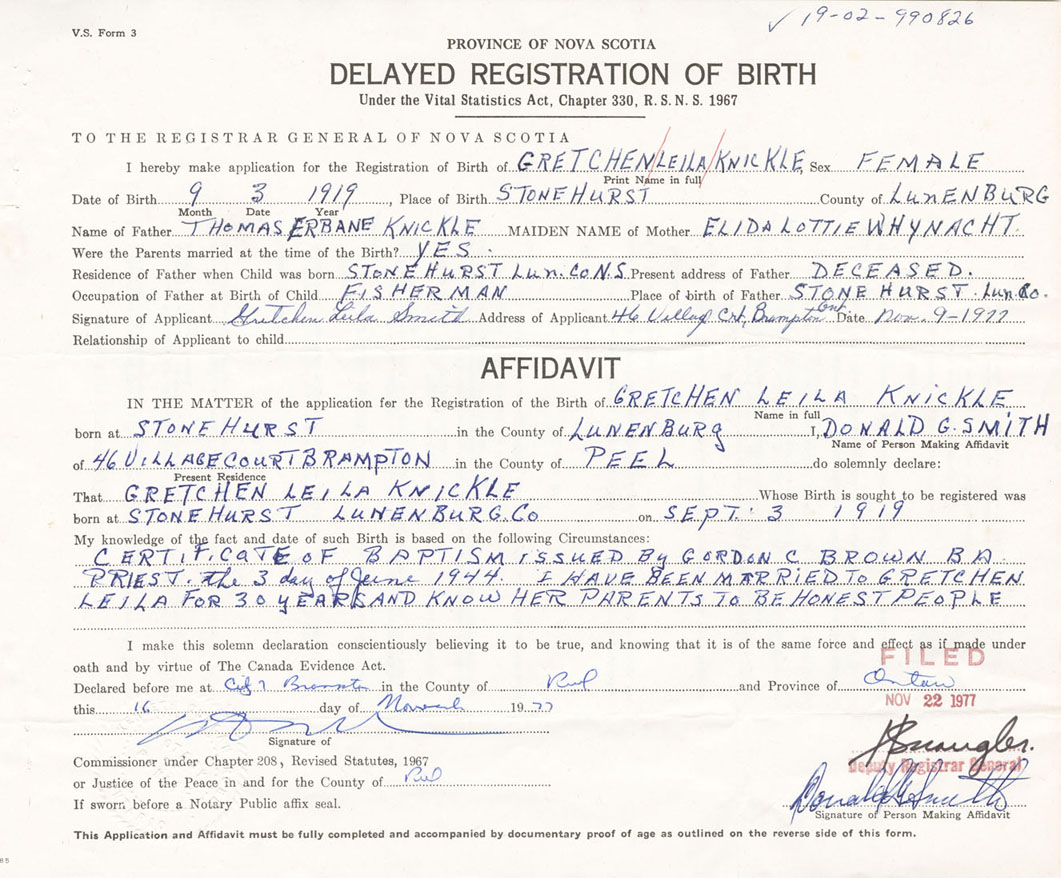 ✓ 19-02-990826
V.S. Form 3
PROVINCE OF NOVA SCOTIA
DELAYED REGISTRATION OF BIRTH
Under the Vital Statistics Act, Chapter 330, R.S.N.S. 1967
TO THE REGISTRAR GENERAL OF NOVA SCOTIA
I hereby make application for the Registration of Birth of GRETCHEN/LEILA/KNICKLE, Sex FEMALE
Print Name in full
Date of Birth 9 3 1919, Place of Birth STONEHURST County of LUNENBURG
Month Date Year
Name of Father THOMAS ERBANE KNICKLE MAIDEN NAME of Mother ELIDA LOTTIE WHYNACHT.
Were the Parents married at the time of the Birth? YES.
Residence of Father when Child was born STONEHURST LUN. CO N.S. Present address of Father DECEASED.
Occupation of Father at Birth of Child FISHERMAN Place of birth of Father STONE HURST. LUN. CO.
Signature of Applicant Gretchen Leila Smith Address of Applicant 46 Village Crt, Brampton Ont Date Nov. 9-1977
Relationship of Applicant to child
AFFIDAVIT
IN THE MATTER of the application for the Registration of the Birth of GRETCHEN LEILA KNICKLE
Name in full
born at STONEHURST in the County of LUNENBURG I, DONALD G. SMITH
Name of Person Making Affidavit
of 46 VILLAGE COURT BRAMPTON in the County of PEEL do solemnly declare:
Present Residence
That GRETCHEN LEILA KNICKLE Whose Birth is sought to be registered was
born at STONEHURST LUNENBURG. CO on SEPT. 3 1919
My knowledge of the fact and date of such Birth is based on the following Circumstances:
CERTIFICATE OF BAPTISM ISSUED By GORDON C BROWN BA
PRIEST. the 3 day of June 1944. I HAVE BEEN MARRIED TO GRETCHEN
LEILA FOR 30 YEARS AND KNOW HER PARENTS TO BE HONEST PEOPLE
I make this solemn declaration conscientiously believing it to be true, and knowing that it is of the same force and effect as if made under
oath and by virtue of The Canada Evidence Act.
FILED
Declared before me at City of Brampton in the County of Peel and Province of Ontario
this 16 day of November 1977
NOV 22 1977
Signature of
Commissioner under Chapter 208, Revised Statutes, 1967
Deputy Registrar General
or Justice of the Peace in and for the County of Peel
Donald G Smith
If sworn before a Notary Public affix seal.
Signature of Person Making Affidavit
This Application and Affidavit must be fully completed and accompanied by documentary proof of age as outlined on the reverse side of this form.